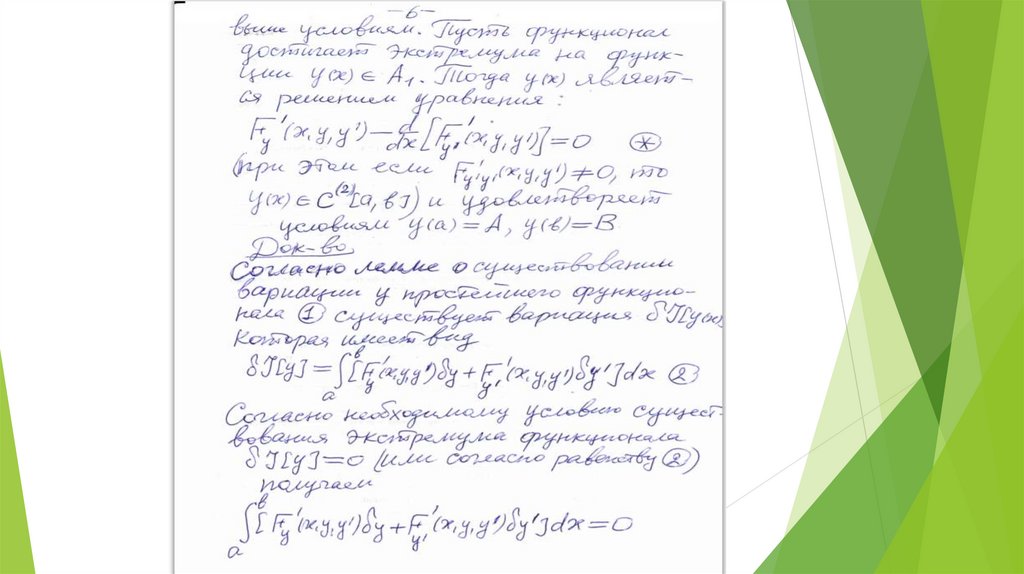 -6-
выше условиям. Пусть функционал
достигает экстремума на функ-
ции y(x) ∈ A₁. Тогда y(x) являет-
ся решением уравнения:
F'_y(x,y,y') - d/dx [F'_y'(x,y,y')] = 0 (*)
(при этом если F''_y'y'(x,y,y') ≠ 0, то
y(x) ∈ C^(2)[a,b]) и удовлетворяет
условиям y(a) = A, y(b) = B
Док-во
Согласно лемме о существовании
вариации у простейшего функцио-
нала (1) существует вариация δJ[y(x)]
которая имеет вид
δJ[y] = ∫_a^b [F'_y(x,y,y')δy + F'_y'(x,y,y')δy']dx (2)
Согласно необходимому условию сущест-
вования экстремума функционала
δJ[y] = 0 (или согласно равенству (2))
получаем
∫_a^b [F'_y(x,y,y')δy + F'_y'(x,y,y')δy']dx = 0